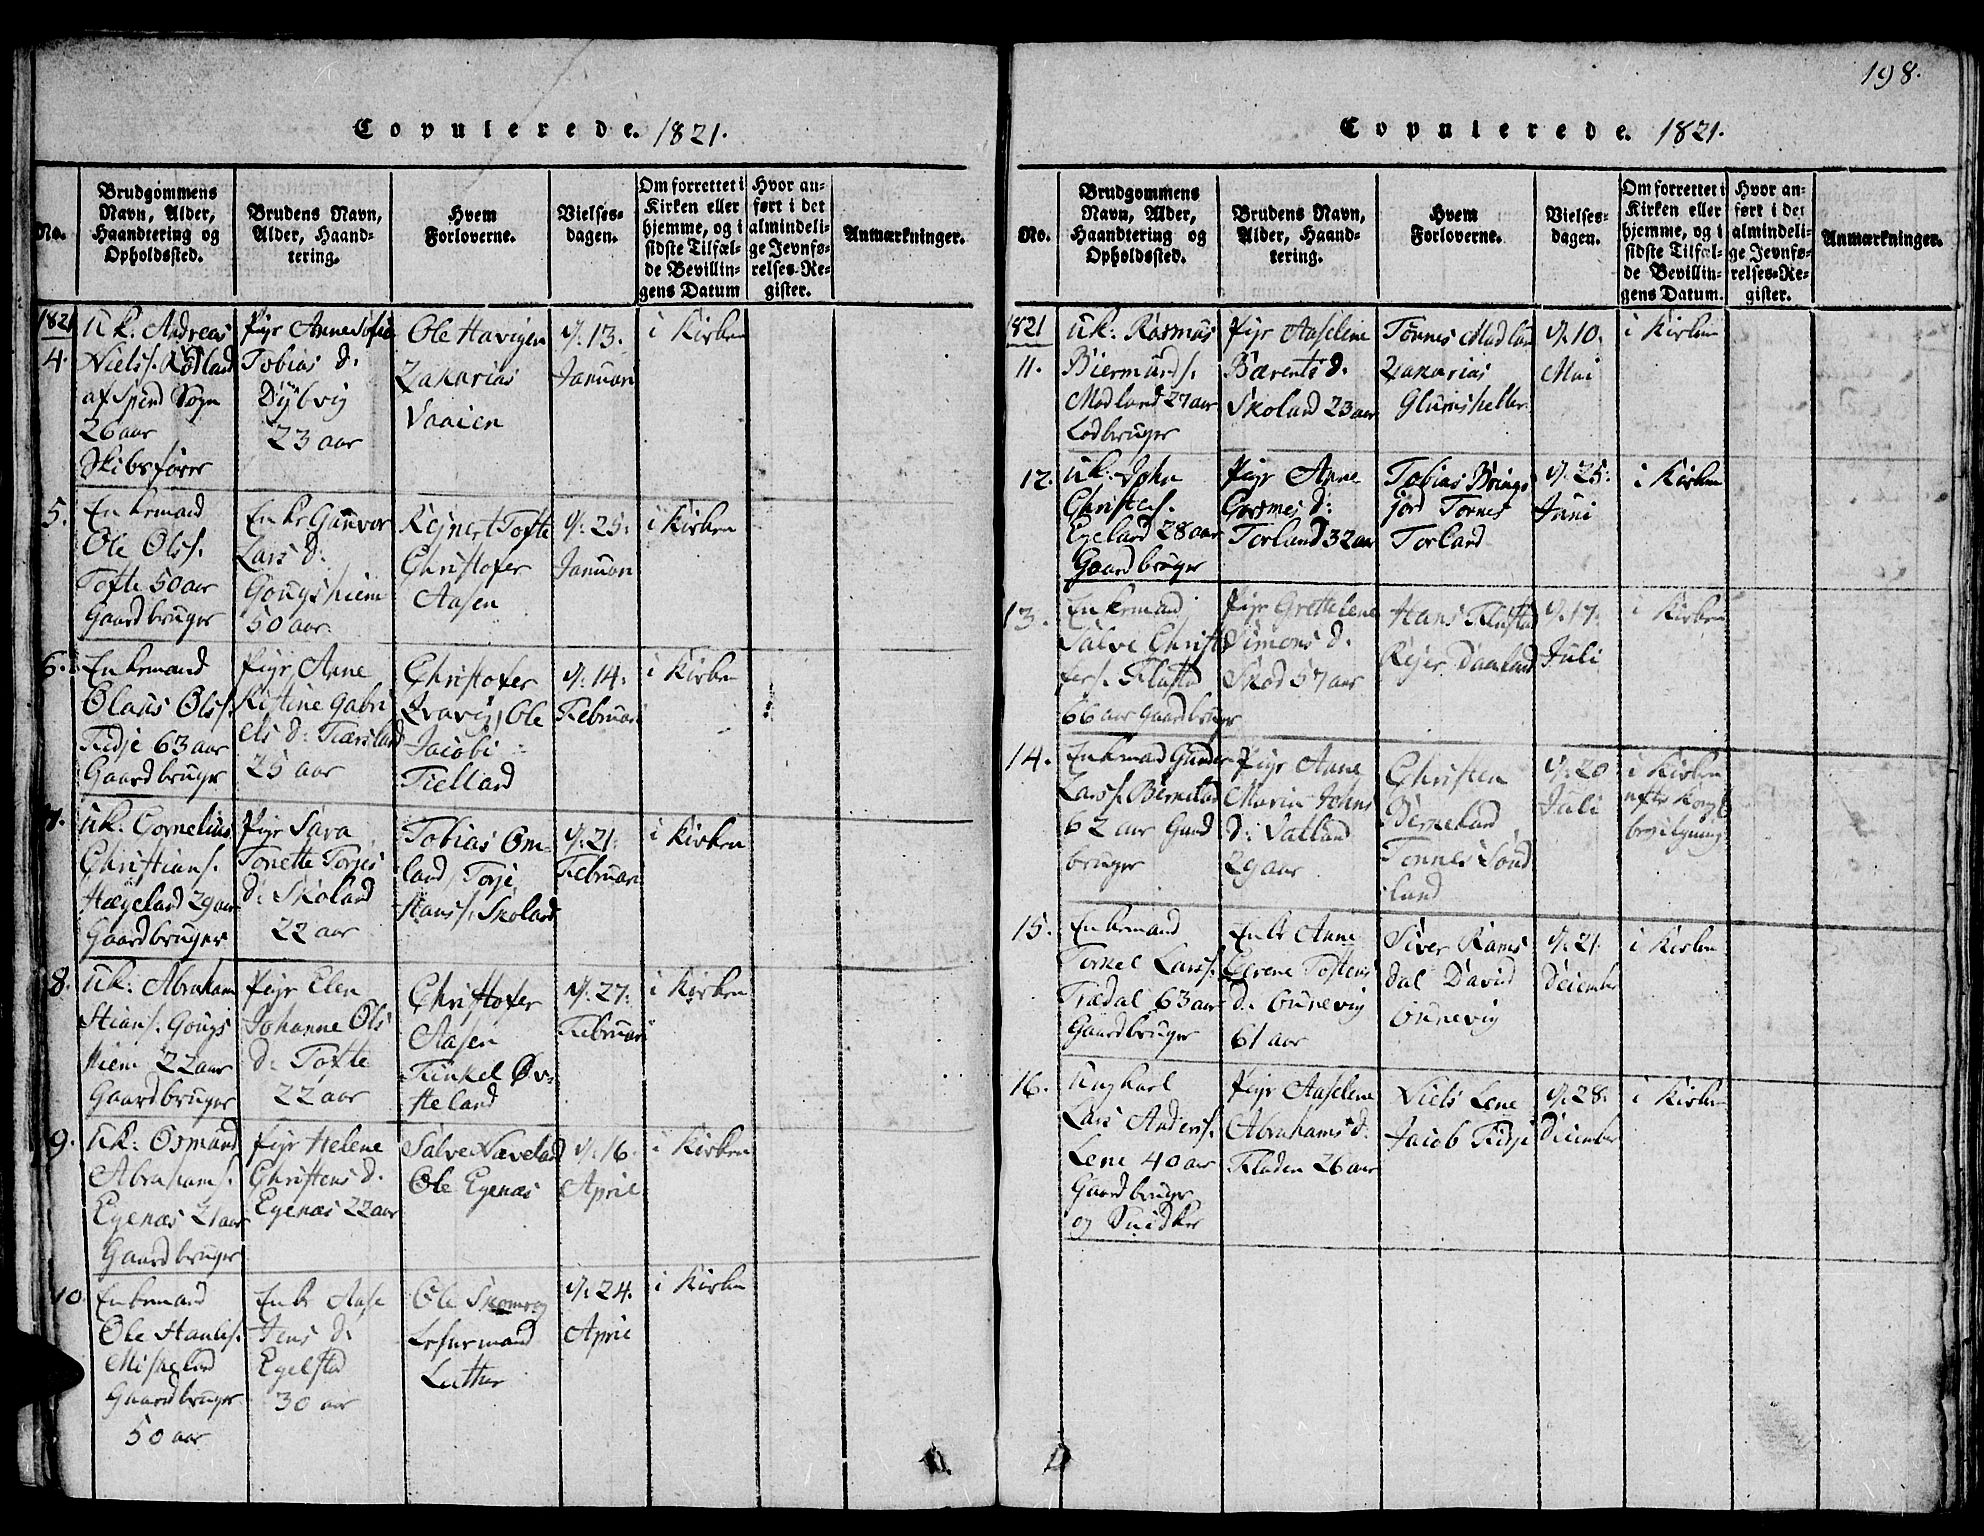 198.
Copulerede. 1821.
No.
Brudgommens Navn, Alder, Haandtering og Opholdssted.
Brudens Navn, Alder, Haandtering.
Hvem Forloverne.
Vielsesdagen.
Om forrettet i Kirken eller hjemme, og i sidste Tilfælde Bevillingens Datum
Hvor anført i det almindelige Jevnførelses-Register.
Anmærkninger.
1821
4.
Uk: Andreas
Niels s. Rødland
af Spind Sogn
26 aar
Skibsfører
Pige Anne Sofie
Tobias d:
Dybvig
23 aar
Ole Havigen
Zakarias
Vaaien
d. 13.
Januari
i Kirken
5.
Enkemand
Ole Ols s.
Tofte 50 aar
Gaardbruger
Enke Gunvor
Lars d:
Gougshiem
50 aar
Rejnert Tofte
Christofer
Aasen
d. 25.
Januari
i Kirken
6.
Enkemand
Olaus Ols s.
Fidje 63 aar
Gaardbruger
Pige Anne
Kistine Gabri
els d:
25 aar
Christofer
Qvavig, Ole
Jacobi
Fielland
d. 14.
Februari
i Kirken
7.
Uk: Cornelius
Christians s.
Hægeland 29 aar
Gaardbruger
Pige Sara
Tonette Torjes
d: Skoland
22 aar
Tobias Om-
land, Torje
Hans s. Skoland
d. 21.
Februari
i Kirken
8.
Uk: Abraham
Stians s. Gougs
hiem 22 aar
Gaardbruger
Pige Elen
Johanne Ols
d: Tofte
22 aar
Christofer
Aasen
Tinkel Øv-
steland
d. 27.
Februari
i Kirken
9.
Uk: Osmand
Abrahams s.
Egenæs 21 aar
Gaardbruger
Pige Helene
Christens d.
Egenæs 22 aar
Salve Naveland
Ole Egenæs
d. 16.
April
i Kirken
10
Enkemand
Ole
Gaardbruger
50 aar
Enke Aase
Jens d:
Egelstad
30 aar
Ole
Lehnsmand
Luther
d. 24.
April
i Kirken
Copulerede. 1821.
No.
Brudgommens Navn, Alder, Haandtering og Opholdssted.
Brudens Navn, Alder, Haandtering.
Hvem Forloverne.
Vielsesdagen.
Om forrettet i Kirken eller hjemme, og i sidste Tilfælde Bevillingens Datum.
Hvor anført i det almindelige Jevnførelses-Register.
Anmærkninger.
1821
11.
Uk: Rasmus
Biermund s.
Modland 27 aar
Lodbruger
Pige Aaselene
Bærents d.
Skoland 23 aar
Tønnes Modland
Zakarias
d. 10.
Mai
i Kirken
12.
Uk: John
Christens s.
Egeland 28 aar
Gaardbruger
Pige Anne
d:
Torland 32 aar
Tobias Brings
jord Tørres
Torland
d. 25.
Juni
i Kirken
13.
Enkemand
Salve Christo
fers s. Flustad
66 aar Gaardbruger
Pige Grethelene
Simons d.
57 aar
Hans Flustad
Rejer
d. 17.
Juli
i Kirken
14.
Enkemand Gunder
Lars s. Berneland
62 aar Gaard
bruger
Pige Anne
Maria Johns
d: Vatland
29 aar
Christen
Berneland
Tønnes Sønd
land
d. 20
Juli
i Kirken
efter Kongl:
bevilgning
15.
Enkemand
Torkel Lars s.
63 aar
Gaardbruger
Enke Anne
d.
61 aar
Siver Rams
dal David
d. 21.
December
i Kirken
16.
Ungkarl
Lars Anders s.
Lene 40 aar
Gaardbruger
og Snidker
Pige Aaselene
Abrahams d.
Fladen 26 aar
Niels Lene
Jacob Fidje
d. 28.
December
i Kirken